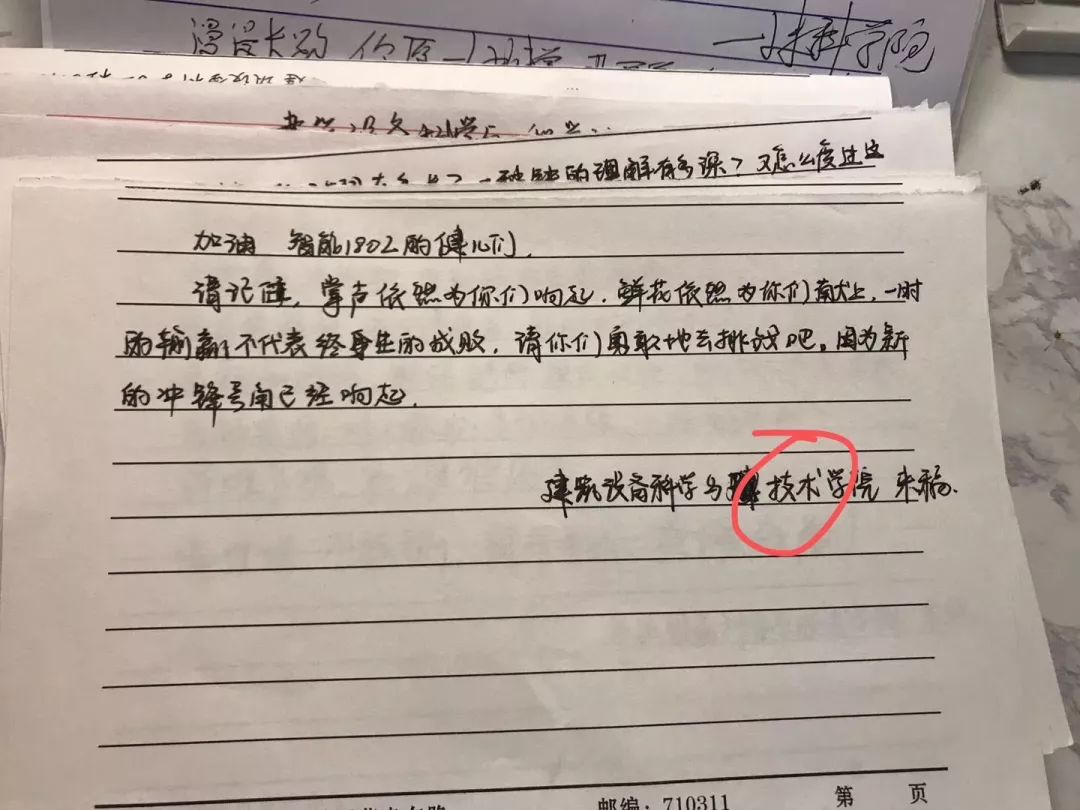 漫漫长路
一材料学院
的理解有多深？又怎么度过这
加油 智能1802的健儿们.
请记住，掌声依然为你们响起，鲜花依然为你们献上，一时
的输赢不代表终身的成败，请你们勇敢地去挑战吧。因为新
的冲锋号角已经响起.
建筑设备科学与技术学院 来稿.
邮编：710311
第 页